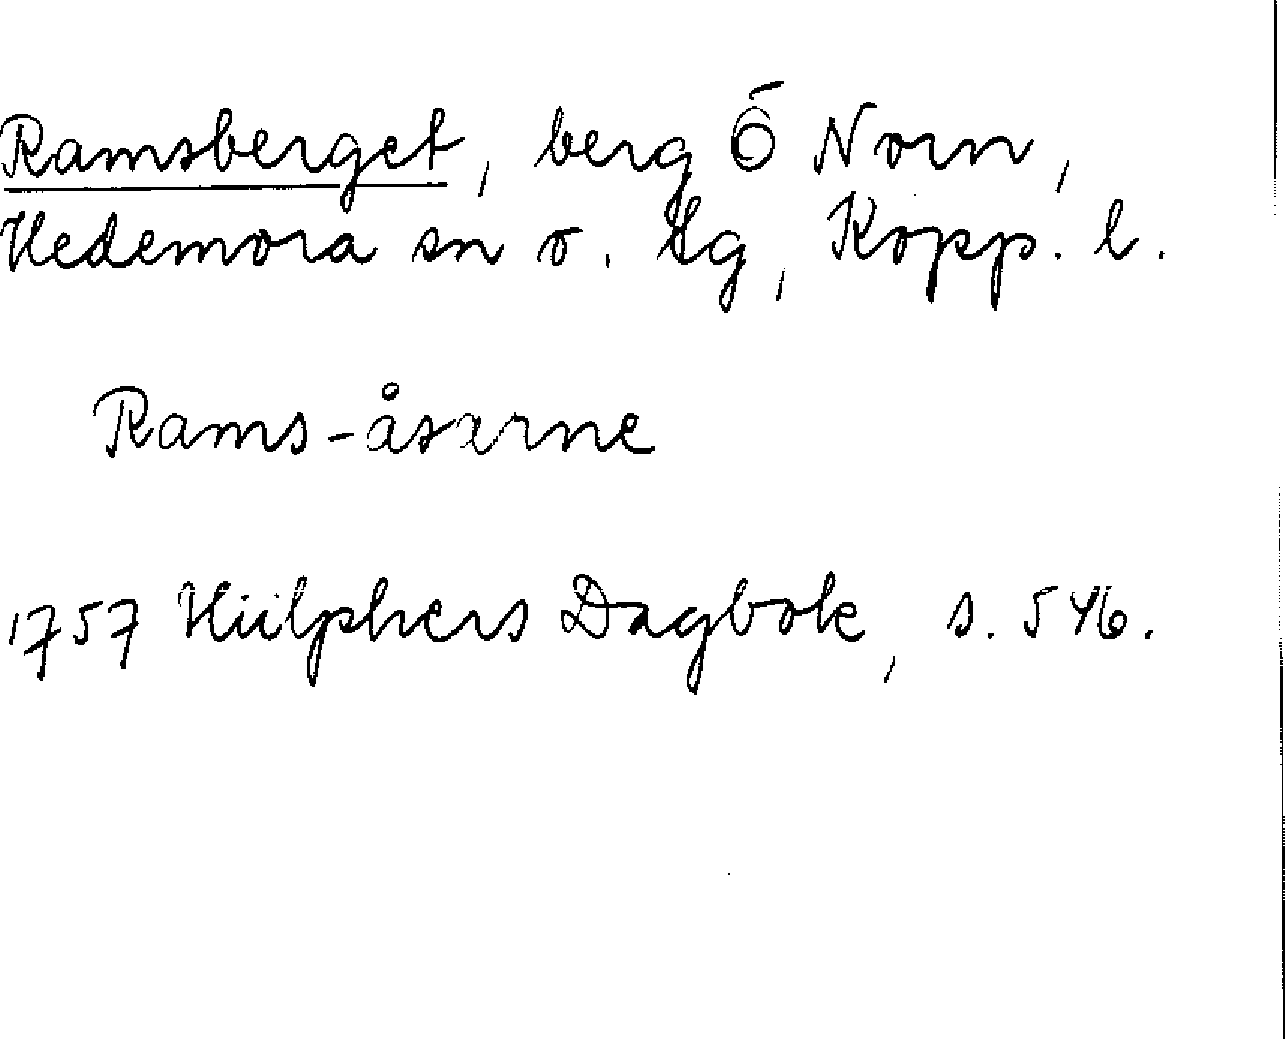 Ramsberget, berg Ö Norn,
Hedemora sn o. tg, Kopp. l.
Rams-åsarne
1757 Hülphers Dagbok, s. 546.